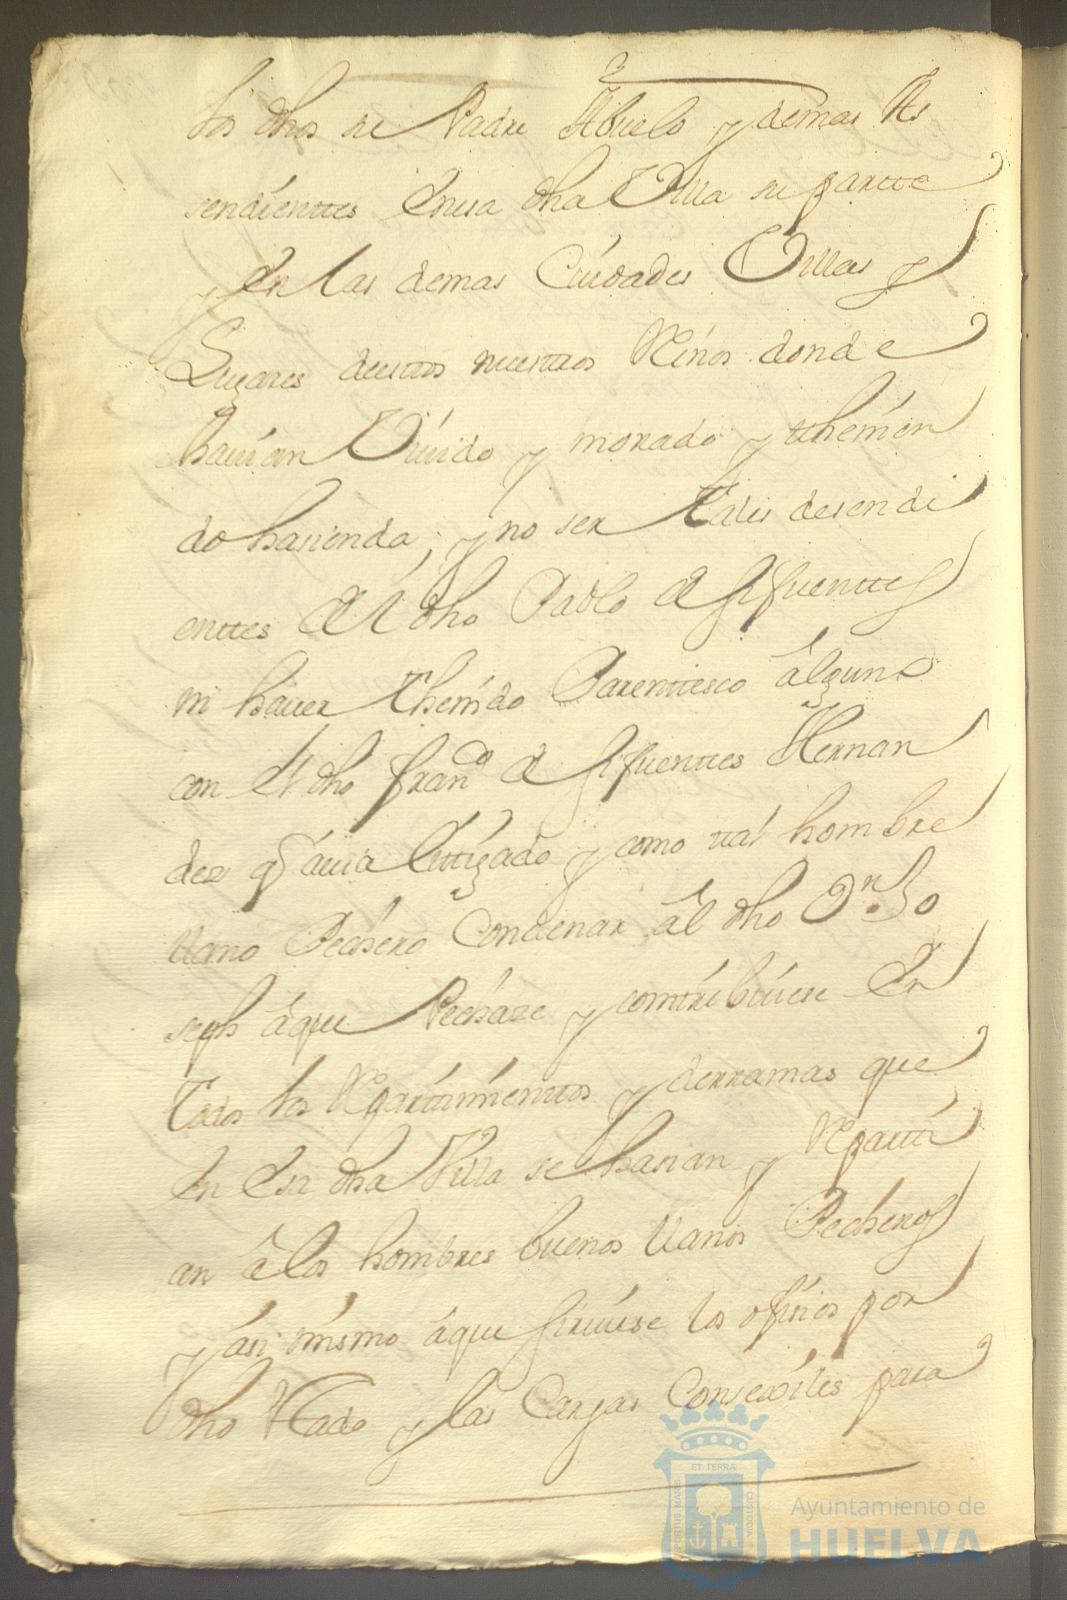 los dhos su Padre Abuelo y demas As
sendienttes En esa dha Villa su partte
y En las demas Ciudades Villas y
Lugares de esttos nuestros Reinos donde
hauian Viuido y morado y thenien
do hasienda, y no ser tales desendi
enttes del dho Pablo de sifuenttes
ni hauer thenido Parenttesco álguno
con el dho Franco de sifuenttes Hernan
dez q áuia littigado y como tal hombre
llano Pechero Condenar ál dho Dn. Jo
seph áque Pechaze y conttribuiese En
todos los Repartimienttos y derramas que
En Esa dha Villa se hasian y Reparti
an á los hombres buenos llanos Pecheros
y ási mismo áque siruiese los ofisios por
dho esttado y las Cargas Consexiles para
ET TERRA
PORTUS MARIS
CUSTODIA
Ayuntamiento de
HUELVA